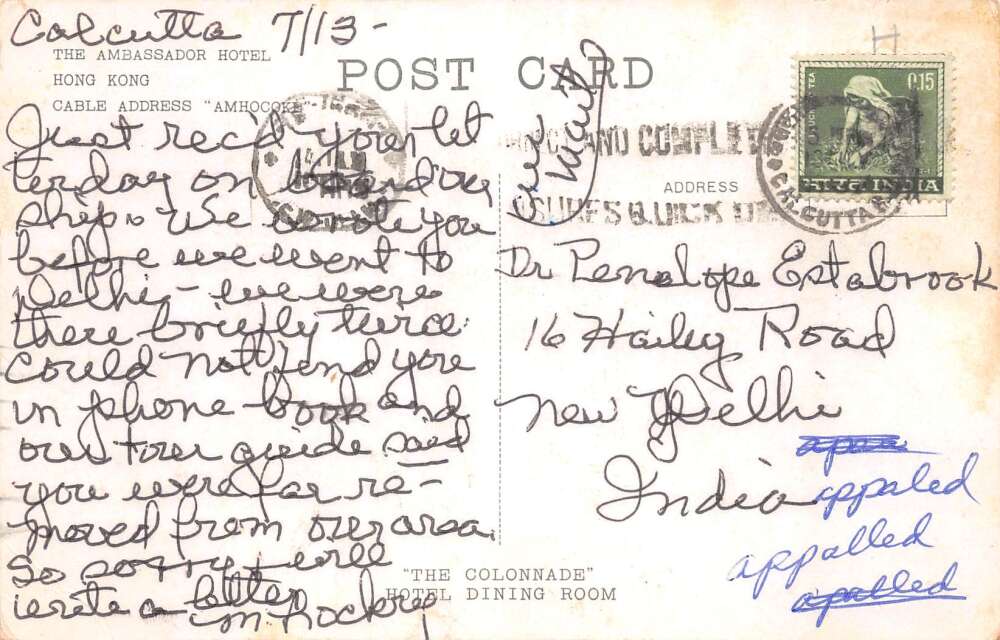 Calcutta 7/13-
THE AMBASSADOR HOTEL
HONG KONG
CABLE ADDRESS "AMHOCOKE"
Just rec'd your let
ter day on boarding
ship. We wrote you
before we went to
Delhi - we were
there briefly twice
could not find you
in phone book and
our tour guide said
you were far re-
moved from our area.
so sorry will
write a letter
POST CARD
ADDRESS
AND COMPLETE
QUICK
CALCUTTA
0.15
TEA
INDIA
Dr Penelope Estabrook
16 Hailey Road
New Delhi
India
appaled
appalled
apalled
"THE COLONNADE"
HOTEL DINING ROOM
H